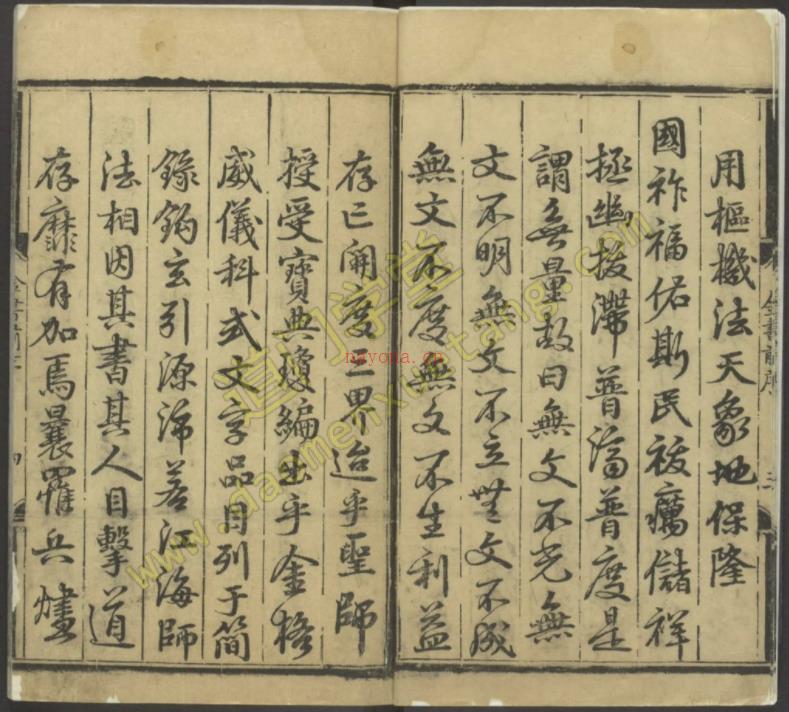 用樞機法天象地保隆
國祚福佑斯民祓癘儲祥
拯幽拔滯普濟普度是
謂無量故曰無文不光無
文不明無文不立無文不成
無文不度無文不生利益
存亡開度三界迨乎聖師
授受寶典瓊編出乎金格
威儀科式文字品目列于簡
錄鈎玄引源沛若江海師
法相因其書其人目擊道
存靡有加焉曩罹兵燼
金書前序
三
四
道门学堂
www.daomenxuetang.com
nayona.cn